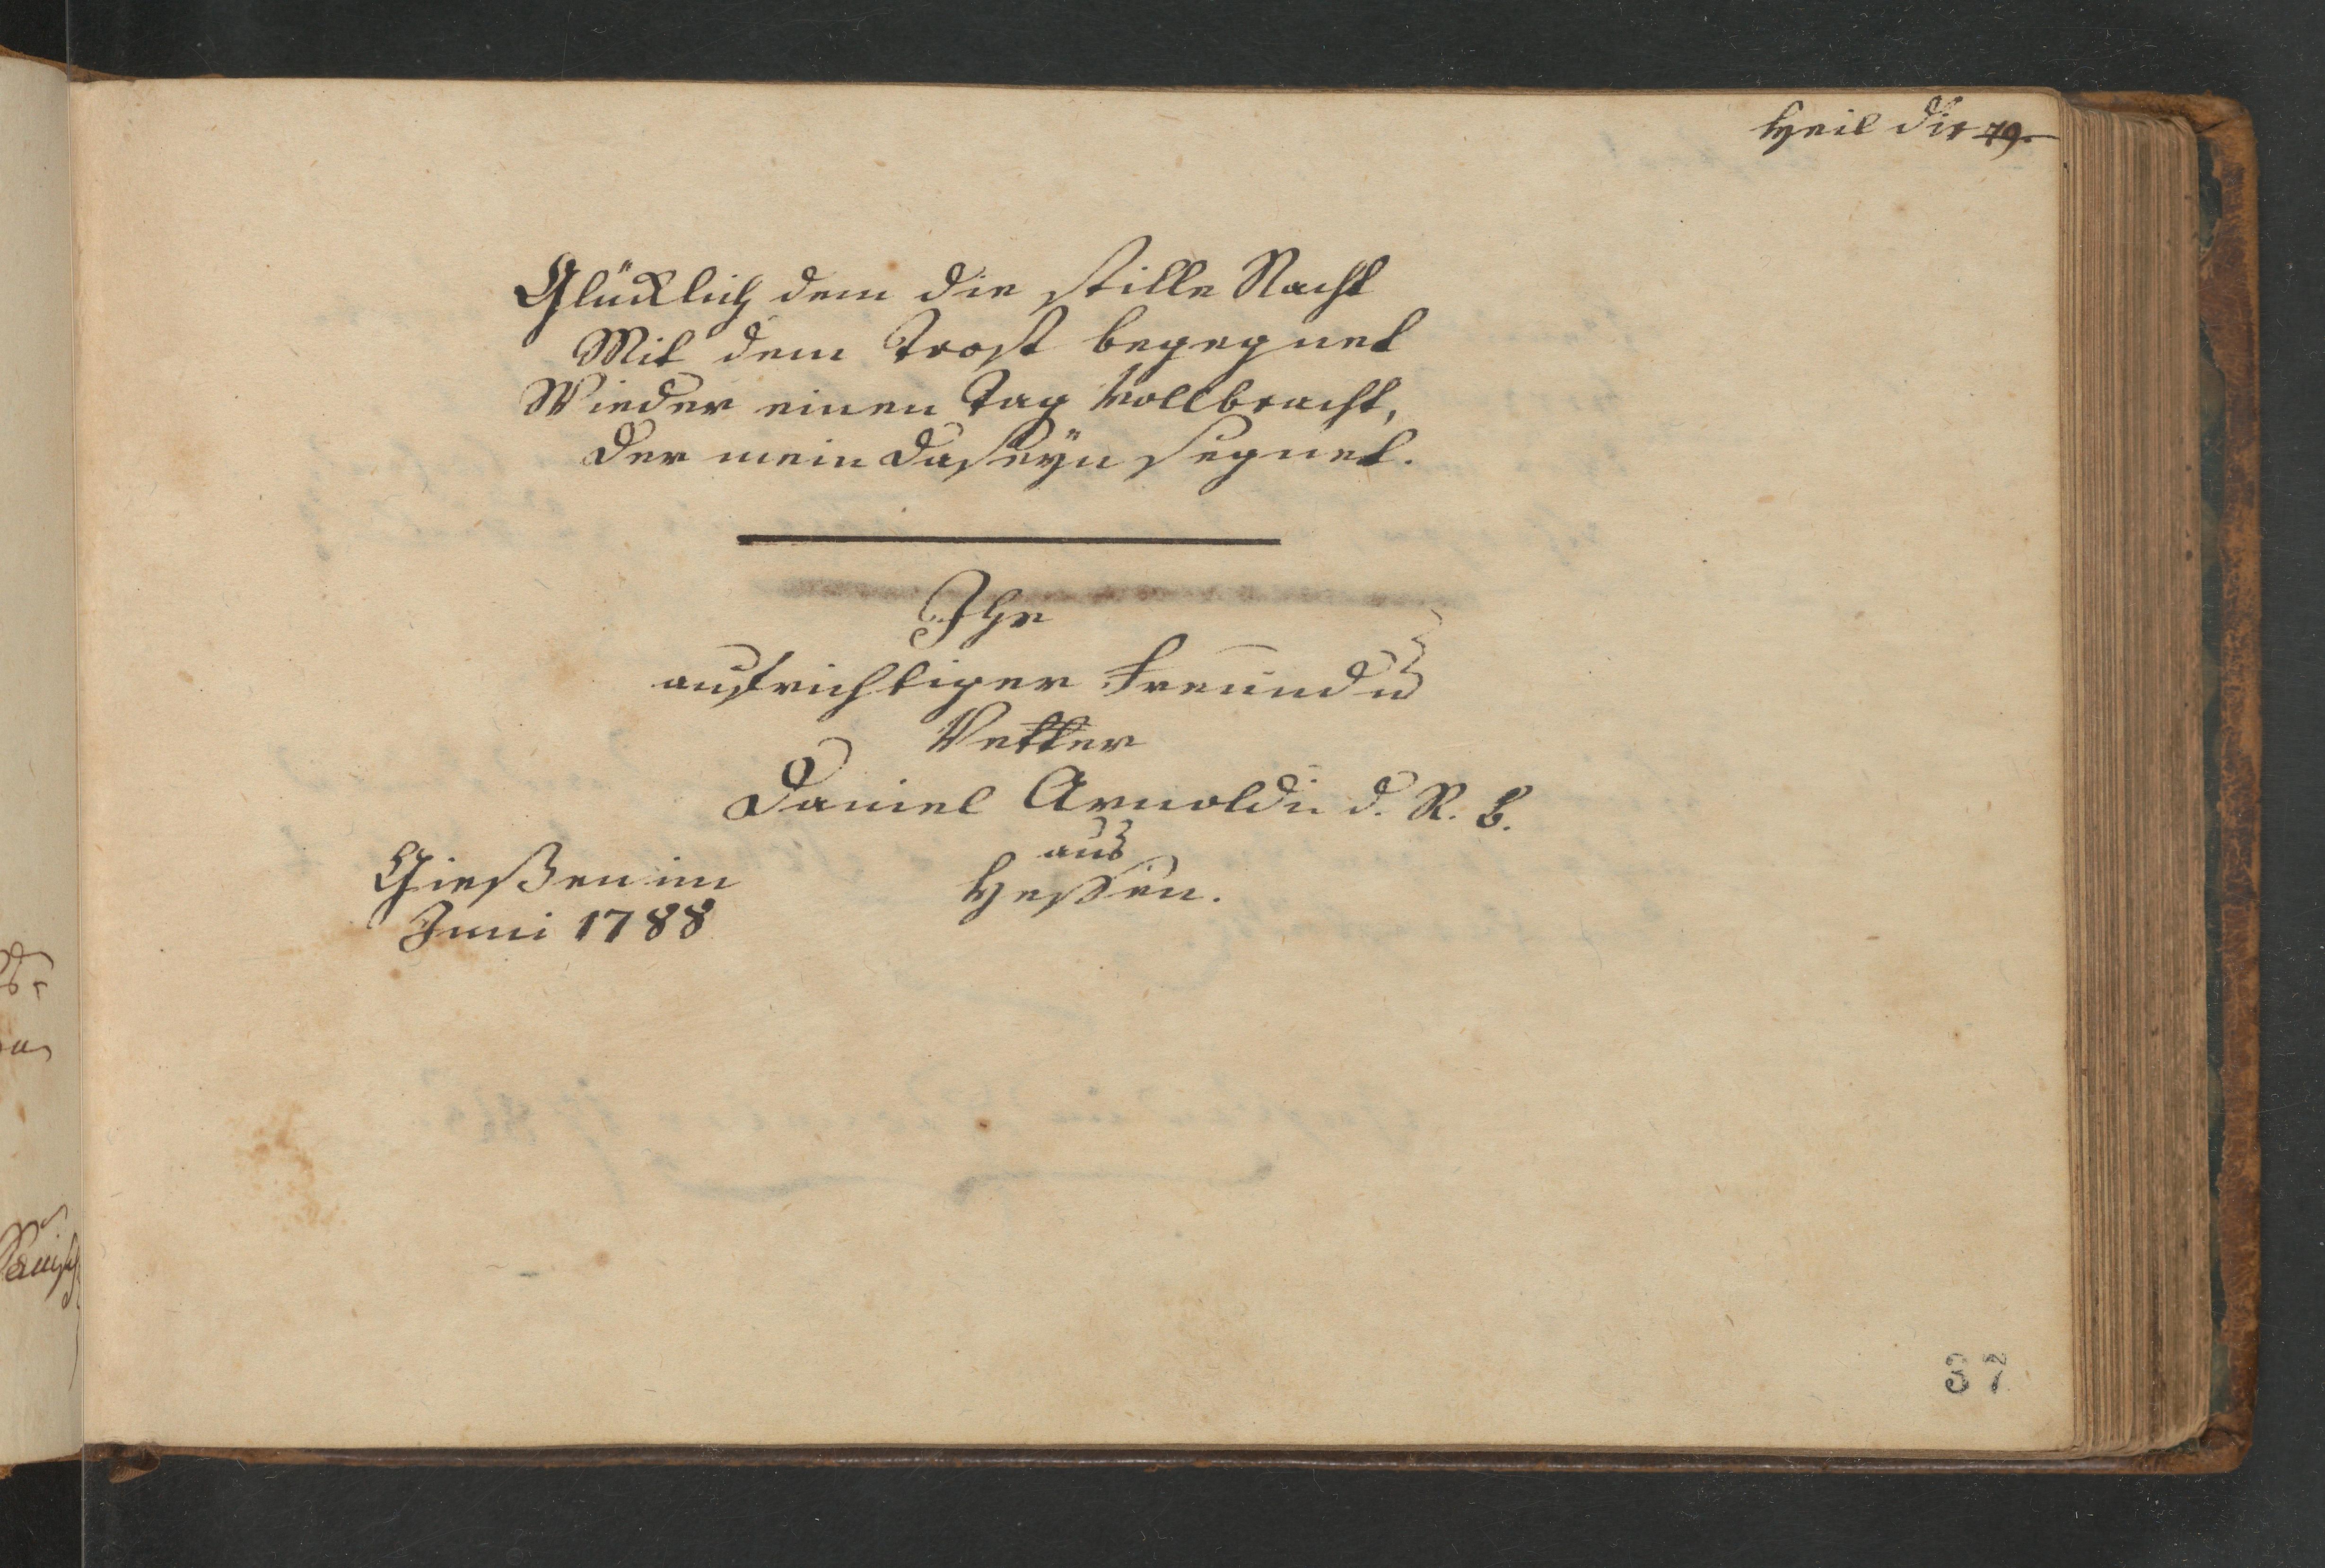 Heil dir 79.
Glücklich dem die stille Nacht
Mit dem Trost begegnet
Wieder einen Tag vollbracht,
Der mein Daseyn segnet.
Ihr
aufrichtiger Freund u
Vetter
Daniel Arnoldi d. R. b.
aus
Heßen.
Gießen im
Juni 1788
37